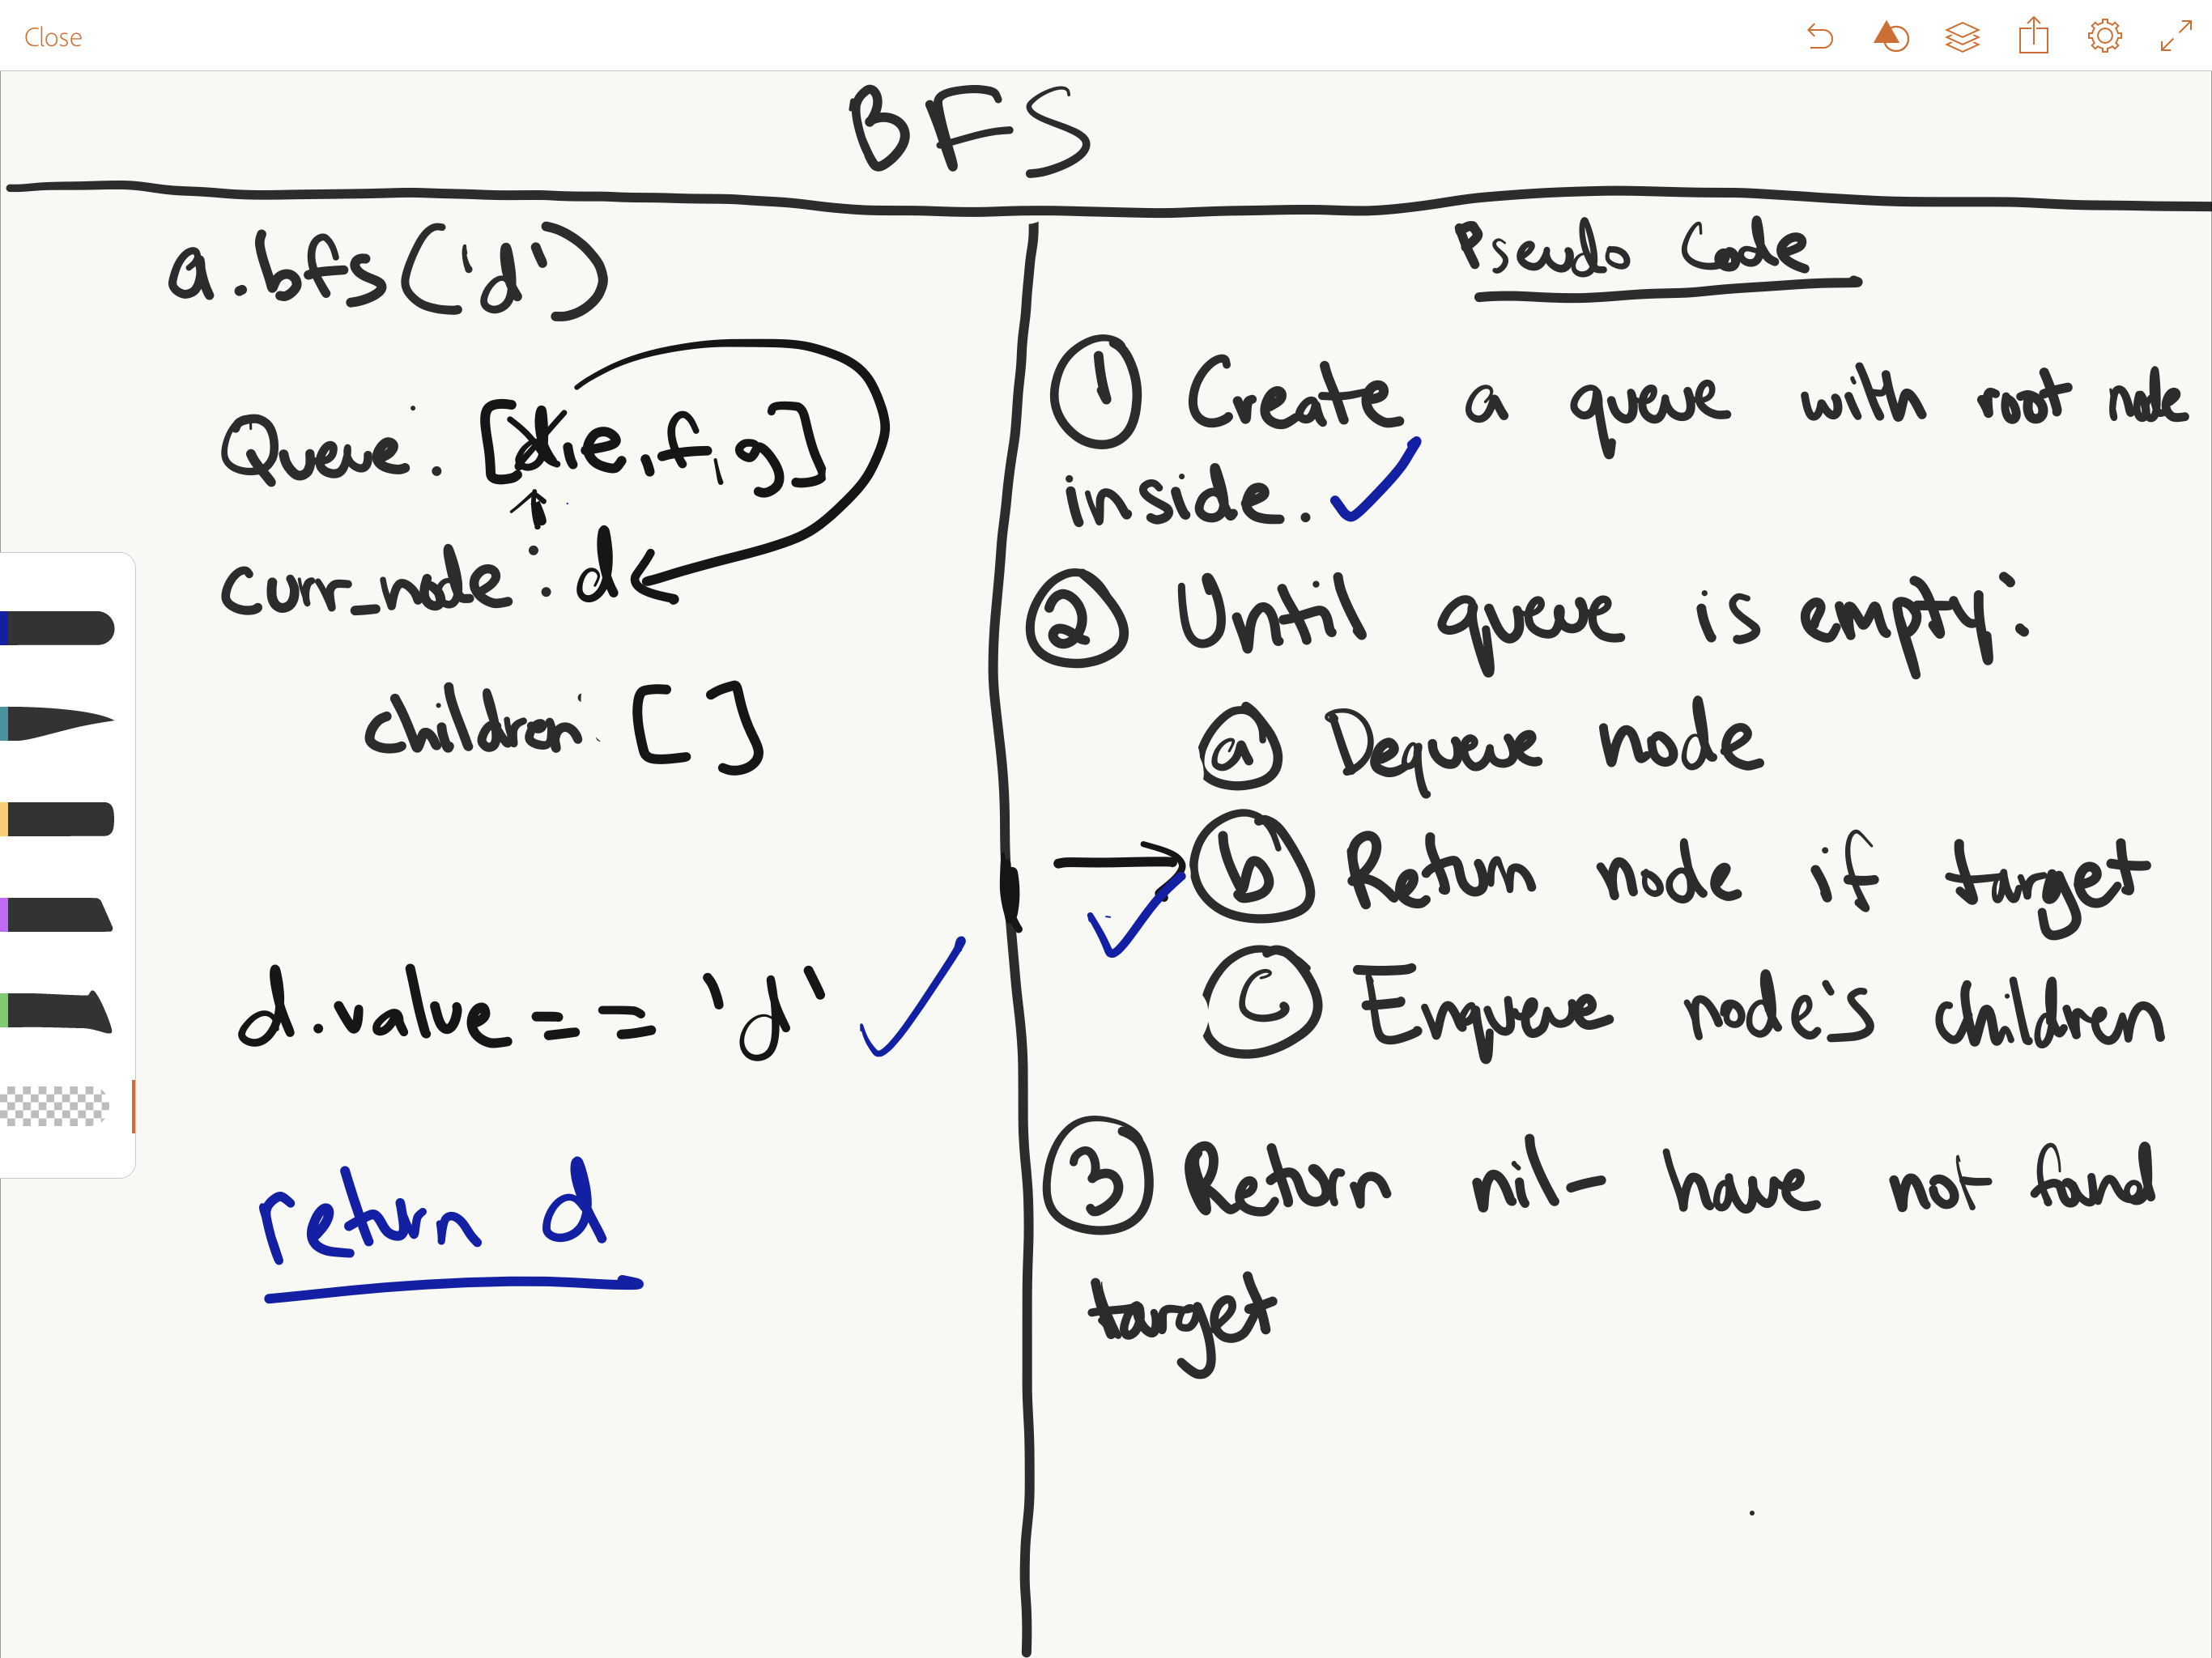 Close
BFS
a.bfs('d')
Queue: [d, e, f, g]
curr_node: d
children: []
d.value == 'd'
return d
Pseudo Code
1 Create a queue with root node
inside.
2 Until queue is empty:
a Dequeue node
b Return node if target
c Enqueue node's children
3 Return nil - have not found
target